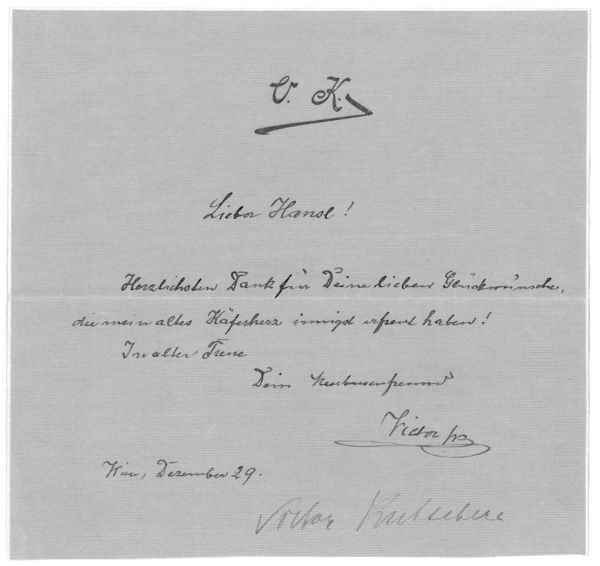 V. K.
Lieber Hansl!
Herzlichsten Dank für Deine lieben Glückwünsche,
die mein altes Käferherz innigst erfreut haben!
In alter Treue
Dein
Victor
Wien, Dezember 29.
Victor